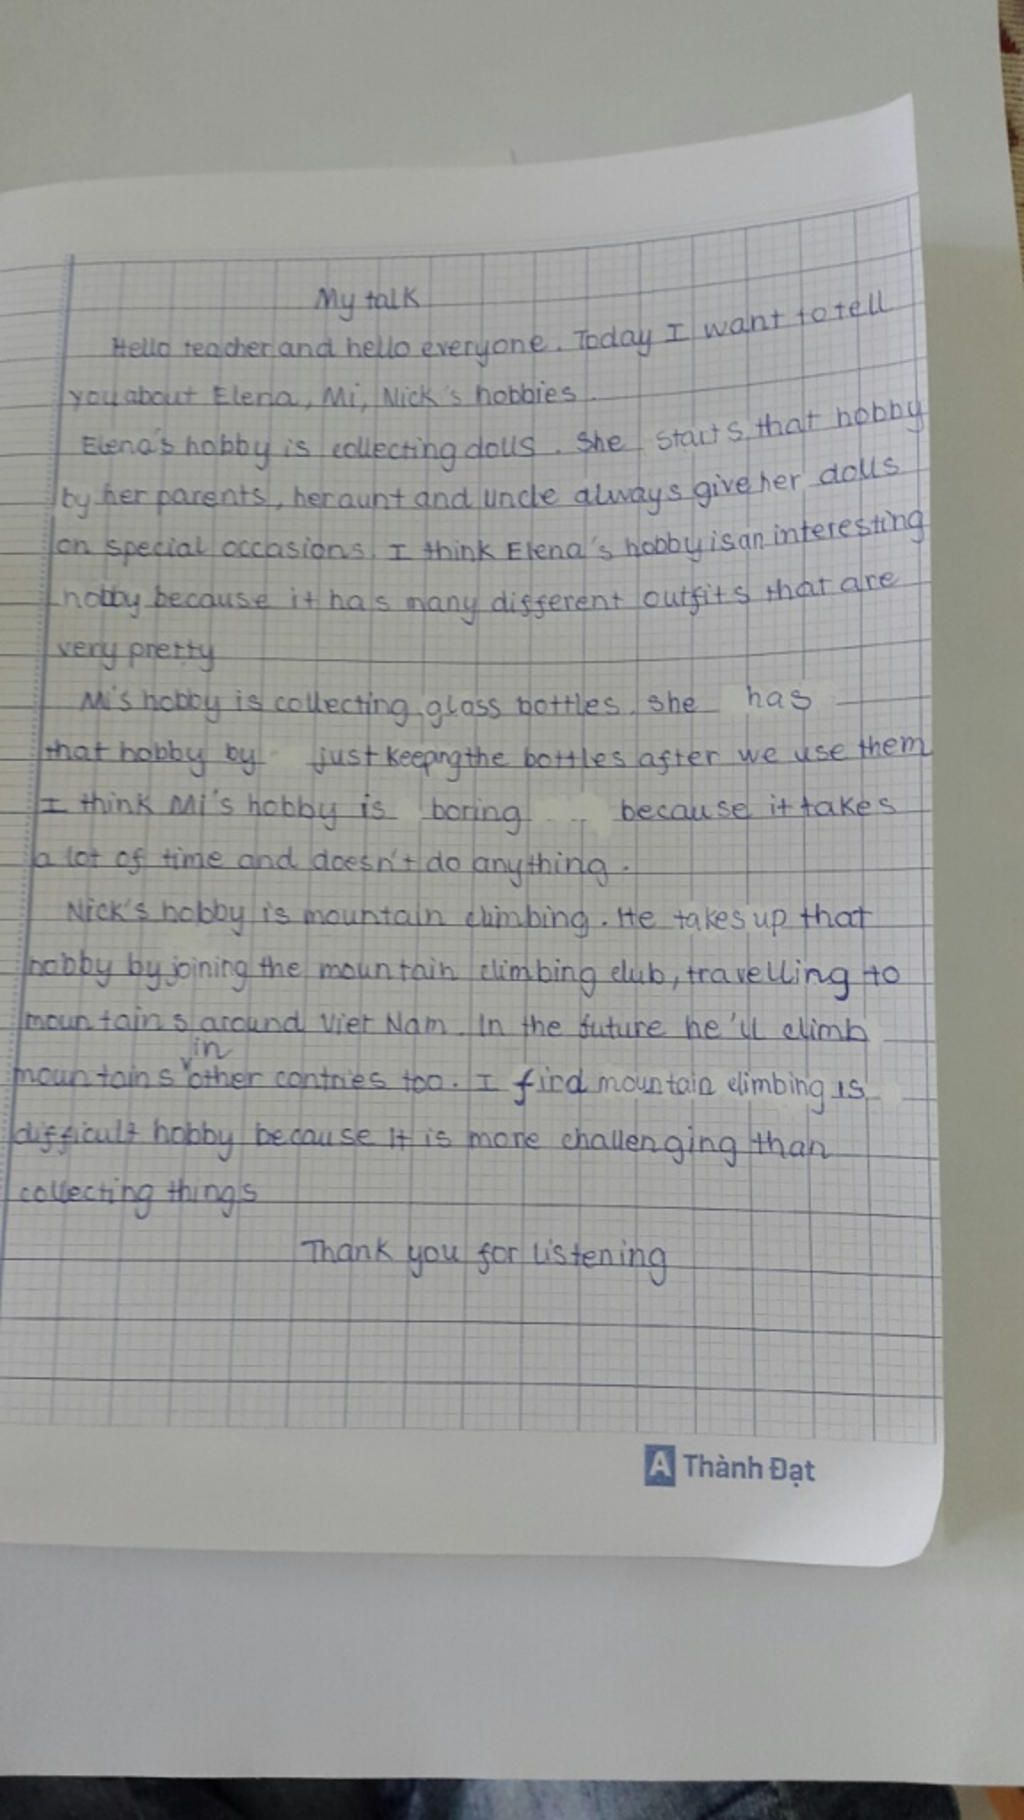 My talk
Hello teacher and hello everyone. Today I want to tell
you about Elena, Mi, Nick's hobbies.
Elena's hobby is collecting dolls. She starts that hobby
by her parents, her aunt and uncle always give her dolls
on special occasions. I think Elena's hobby is an interesting
hobby because it has many different outfits that are
very pretty
Mi's hobby is collecting glass bottles. she has
that hobby by just keeping the bottles after we use them
I think Mi's hobby is boring because it takes
a lot of time and doesn't do anything.
Nick's hobby is mountain climbing. He takes up that
hobby by joining the mountain climbing club, travelling to
mountains around Viet Nam. In the future he'll climb
mountains in other contries too. I find mountain climbing is
difficult hobby because it is more challenging than
collecting things
Thank you for listening
A Thành Đạt